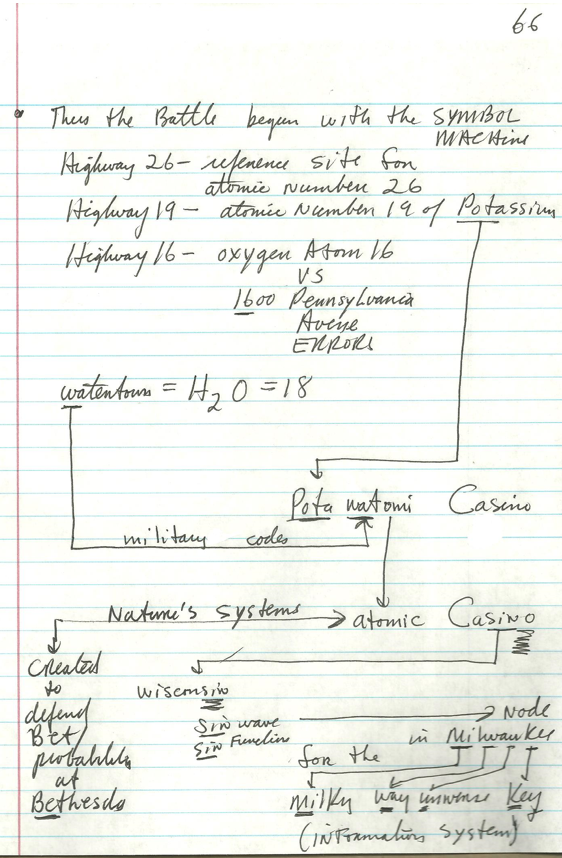 66
• Thus the Battle began with the SYMBOL
MACHINE
Highway 26 – reference site for
atomic number 26
Highway 19 – atomic Number 19 of Potassium
Highway 16 – oxygen Atom 16
VS
1600 Pennsylvania
Avenue
ERRORS
watertown = H2O = 18
Pota watomi Casino
military codes
Nature's systems → atomic Casino
Created
to
defend
Bet
probability
at
Bethesda
Wisconsin
Sin wave → Node
Sin Function in Milwaukee
for the
Milky way universe Key
(information system)